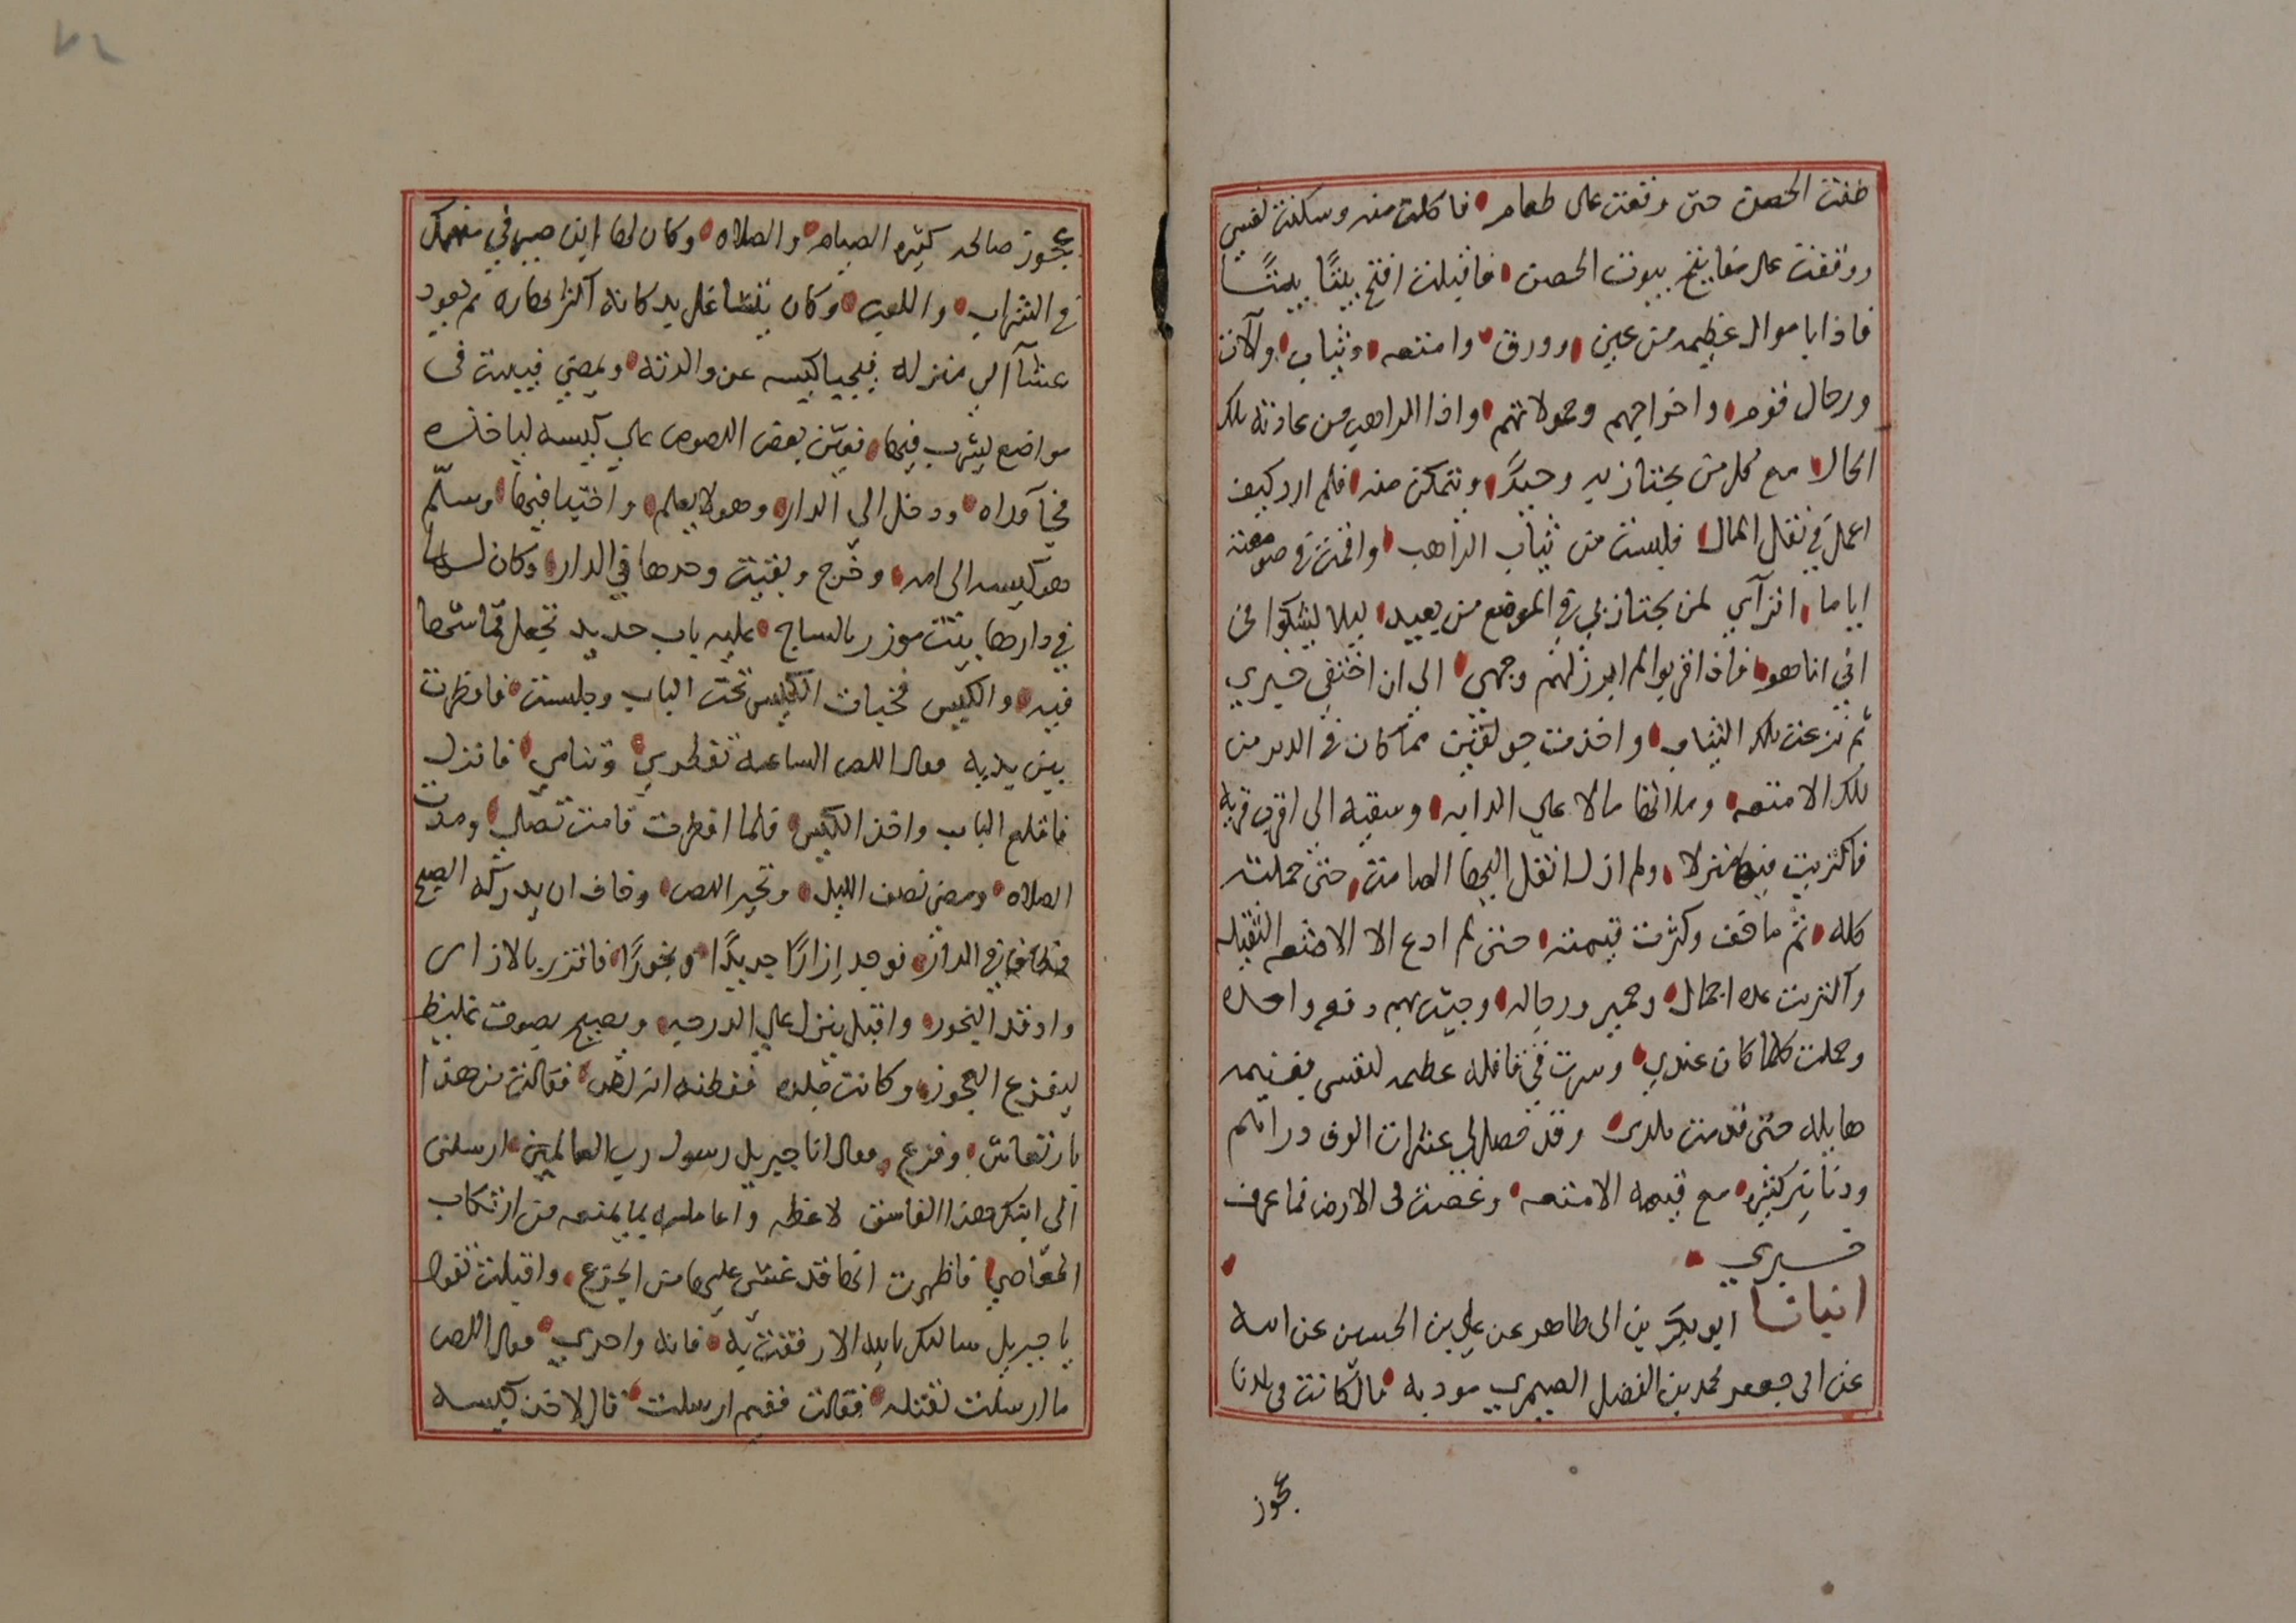 طفت الحصن حتى وقعت على طعام فاكلت منه وسكنت نفسي
ووقفت على مفاتيح بيوت الحصن فاقبلت افتح بيتًا بيتًا
فاذا باموال عظيمه من عين وورق وامتعه وثياب وآلات
ورحال قوم واخراجهم وحمولاتهم واذا الراهب من عادته تلك
الحال مع كل من يجتاز به وحيدًا ويتمكن منه فلم ادر كيف
اعمل في نقل المال فلبست من ثياب الراهب واقمت في صومعته
اياما اترآي لمن يجتاز بي في الموضع من بعيد ليلا ليشكوا في
اني انا هو فاذا قربوا لم ابرز لهم وجهي الي ان اختفي خبري
ثم نزعت تلك الثياب واخذت جولقين مما كان في الدير من
تلك الامتعه وملاتها مالا علي الدابه وسقته الى اقرب قريه
فاكتريت فيها منزلا ولم ازل انقل اليها الصامت حتى حملته
كله ثم ما خف وكثرت قيمته حتى لم ادع الا الامتعه الثقيله
واكتريت عده اجمال وحمير ورجاله وجيت بهم دفعه واحده
وحملت كلما كان عندي وسرت في قافله عظيمه لنفسي بغنيمه
هايله حتى قدمت بلدى وقد حصل لي عشرات الوف دراهم
ودنانير كثيره مع قيمه الامتعه وغصت في الارض فما عرف
خبري
انبانا ابو بكر بن ابى طاهر عن علي بن الحسين عن ابيه
عن ابى جعفر محمد بن الفضل الصيمري موديه قال كانت فى بلدنا
عجوز
عجوز صالحه كثيره الصيام والصلاه وكان لها ابن صيرفي منهمك
في الشراب واللعب وكان يتشاغل بدكانه اكثر نهاره ثم يعود
عشآ الي منزله فيخبا كيسه عند والدته ويمضي فيبيت فى
مواضع يشرب فيها فعين بعض اللصوص علي كيسه لياخذه
فجآ وراه ودخل الي الدار وهو لا يعلم واختبا فيها وسلّم
هو كيسه الى امه وخرج وبقيت وحدها في الدار وكان لها
في دارها بيت موزر بالساج عليه باب حديد تجعل قماشها
فيه والكيس فخبات الكيس تحت الباب وجلست فافطرت
بين يديه فقال اللص الساعه تفطر وتنام فانزل
فاقلع الباب واخذ الكيس فلما افطرت قامت تصلي ومدت
الصلاه ومضى نصف الليل وتحير اللص وخاف ان يدركه الصبح
فطاف في الدار فوجد إزارًا جديدًا وبخورًا فاتزر بالازار
واوقد البخور واقبل ينزل علي الدرجه ويصيح بصوت غليظ
ليفزع العجوز وكانت جلده ففطنه انه لص فقالت من هذا
بارتعاش وفزع فقال انا جبريل رسول رب العالمين ارسلنى
الي ابنك هذا الفاسق لاعظه واعامله بما يمنعه من ارتكاب
المعاصي فاظهرت انها قد غشي عليها من الجزع واقبلت تقول
يا جبريل سالتك بالله الا رفقت به فانه واحدي فقال اللص
ما ارسلت لقتله فقالت ففيم ارسلت قال لاخذ كيسه